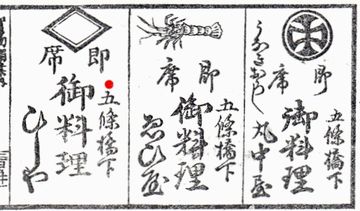 五條橋下
即席
御料理
うなぎめし
丸中屋
五條橋下
即席
御料理
ゑび屋
五條橋下
即席
御料理
ひしや